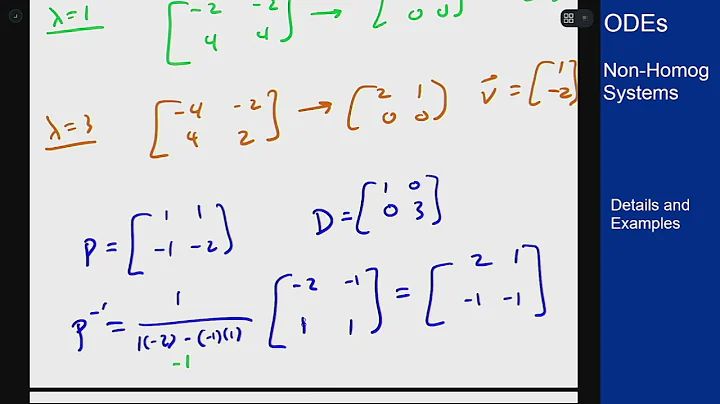 λ=1 [-2 -2 → [
4 4] 0 0]
λ=3 [-4 -2 → [2 1 v⃗ = [1
4 2] 0 0] -2]
P = [1 1 D = [1 0
-1 -2] 0 3]
P⁻¹ = 1 / 1(-2) - (-1)(1) [-2 -1 = [2 1
1 1] -1 -1]
-1
ODEs
Non-Homog
Systems
Details and
Examples